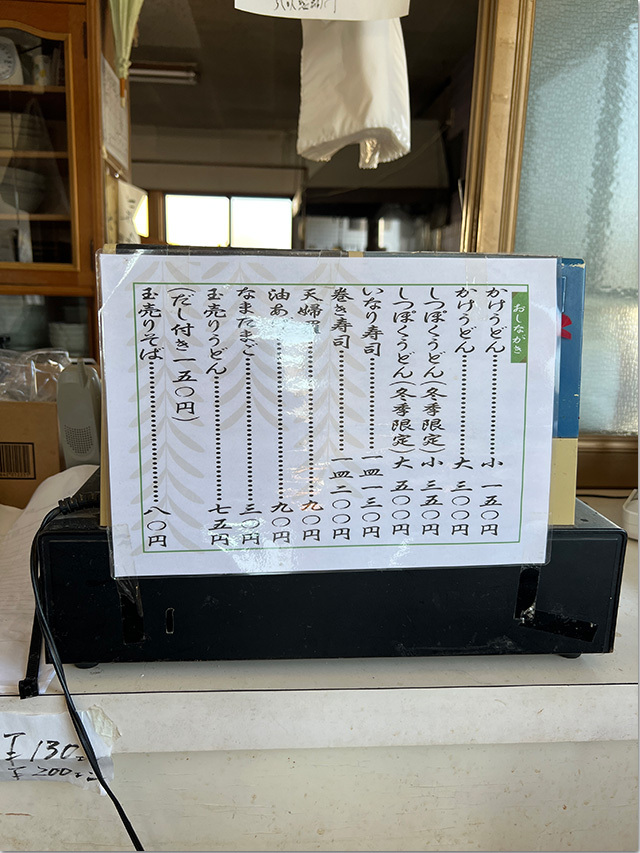 おしながき
かけうどん……………小 一五〇円
かけうどん……………大 三〇〇円
しっぽくうどん(冬季限定)小 三五〇円
しっぽくうどん(冬季限定)大 五〇〇円
いなり寿司……………一皿一三〇円
巻き寿司……………一皿二〇〇円
天婦羅……………九〇円
油あげ……………九〇円
なまたまご……………三〇円
玉売りうどん……………七五円
(だし付き一五〇円)
玉売りそば……………八〇円
130
200